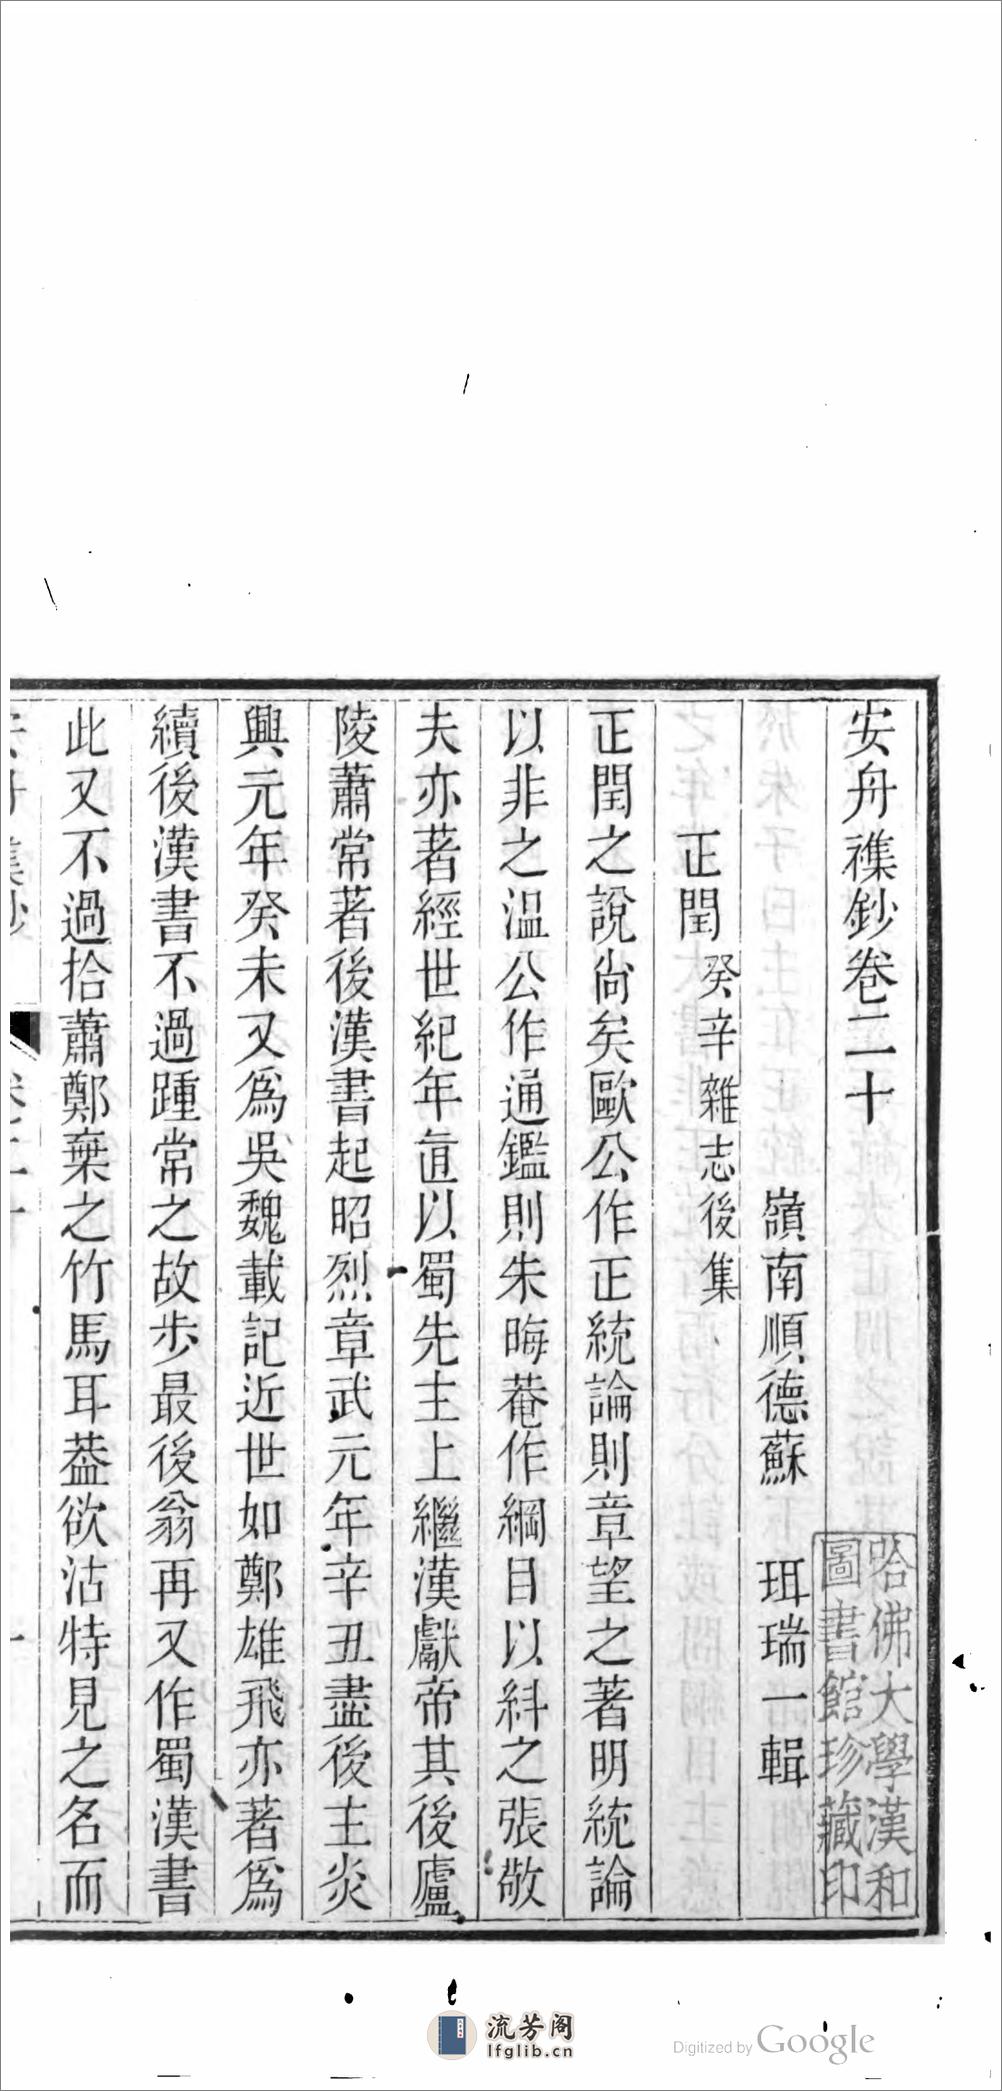 安舟襍鈔卷二十
嶺南順德蘇 珥瑞一輯
正閏 癸辛雜志後集
正閏之說尙矣歐公作正統論則章望之著明統論
以非之温公作通鑑則朱晦菴作綱目以糾之張敬
夫亦著經世紀年直以蜀先主上繼漢獻帝其後廬
陵蕭常著後漢書起昭烈章武元年辛丑盡後主炎
興元年癸未又爲吳魏載記近世如鄭雄飛亦著爲
續後漢書不過踵常之故步最後翁再又作蜀漢書
此又不過拾蕭鄭棄之竹馬耳葢欲沽特見之名而
哈佛大學漢和
圖書館珍藏印
流芳阁
lfglib.cn
Digitized by Google